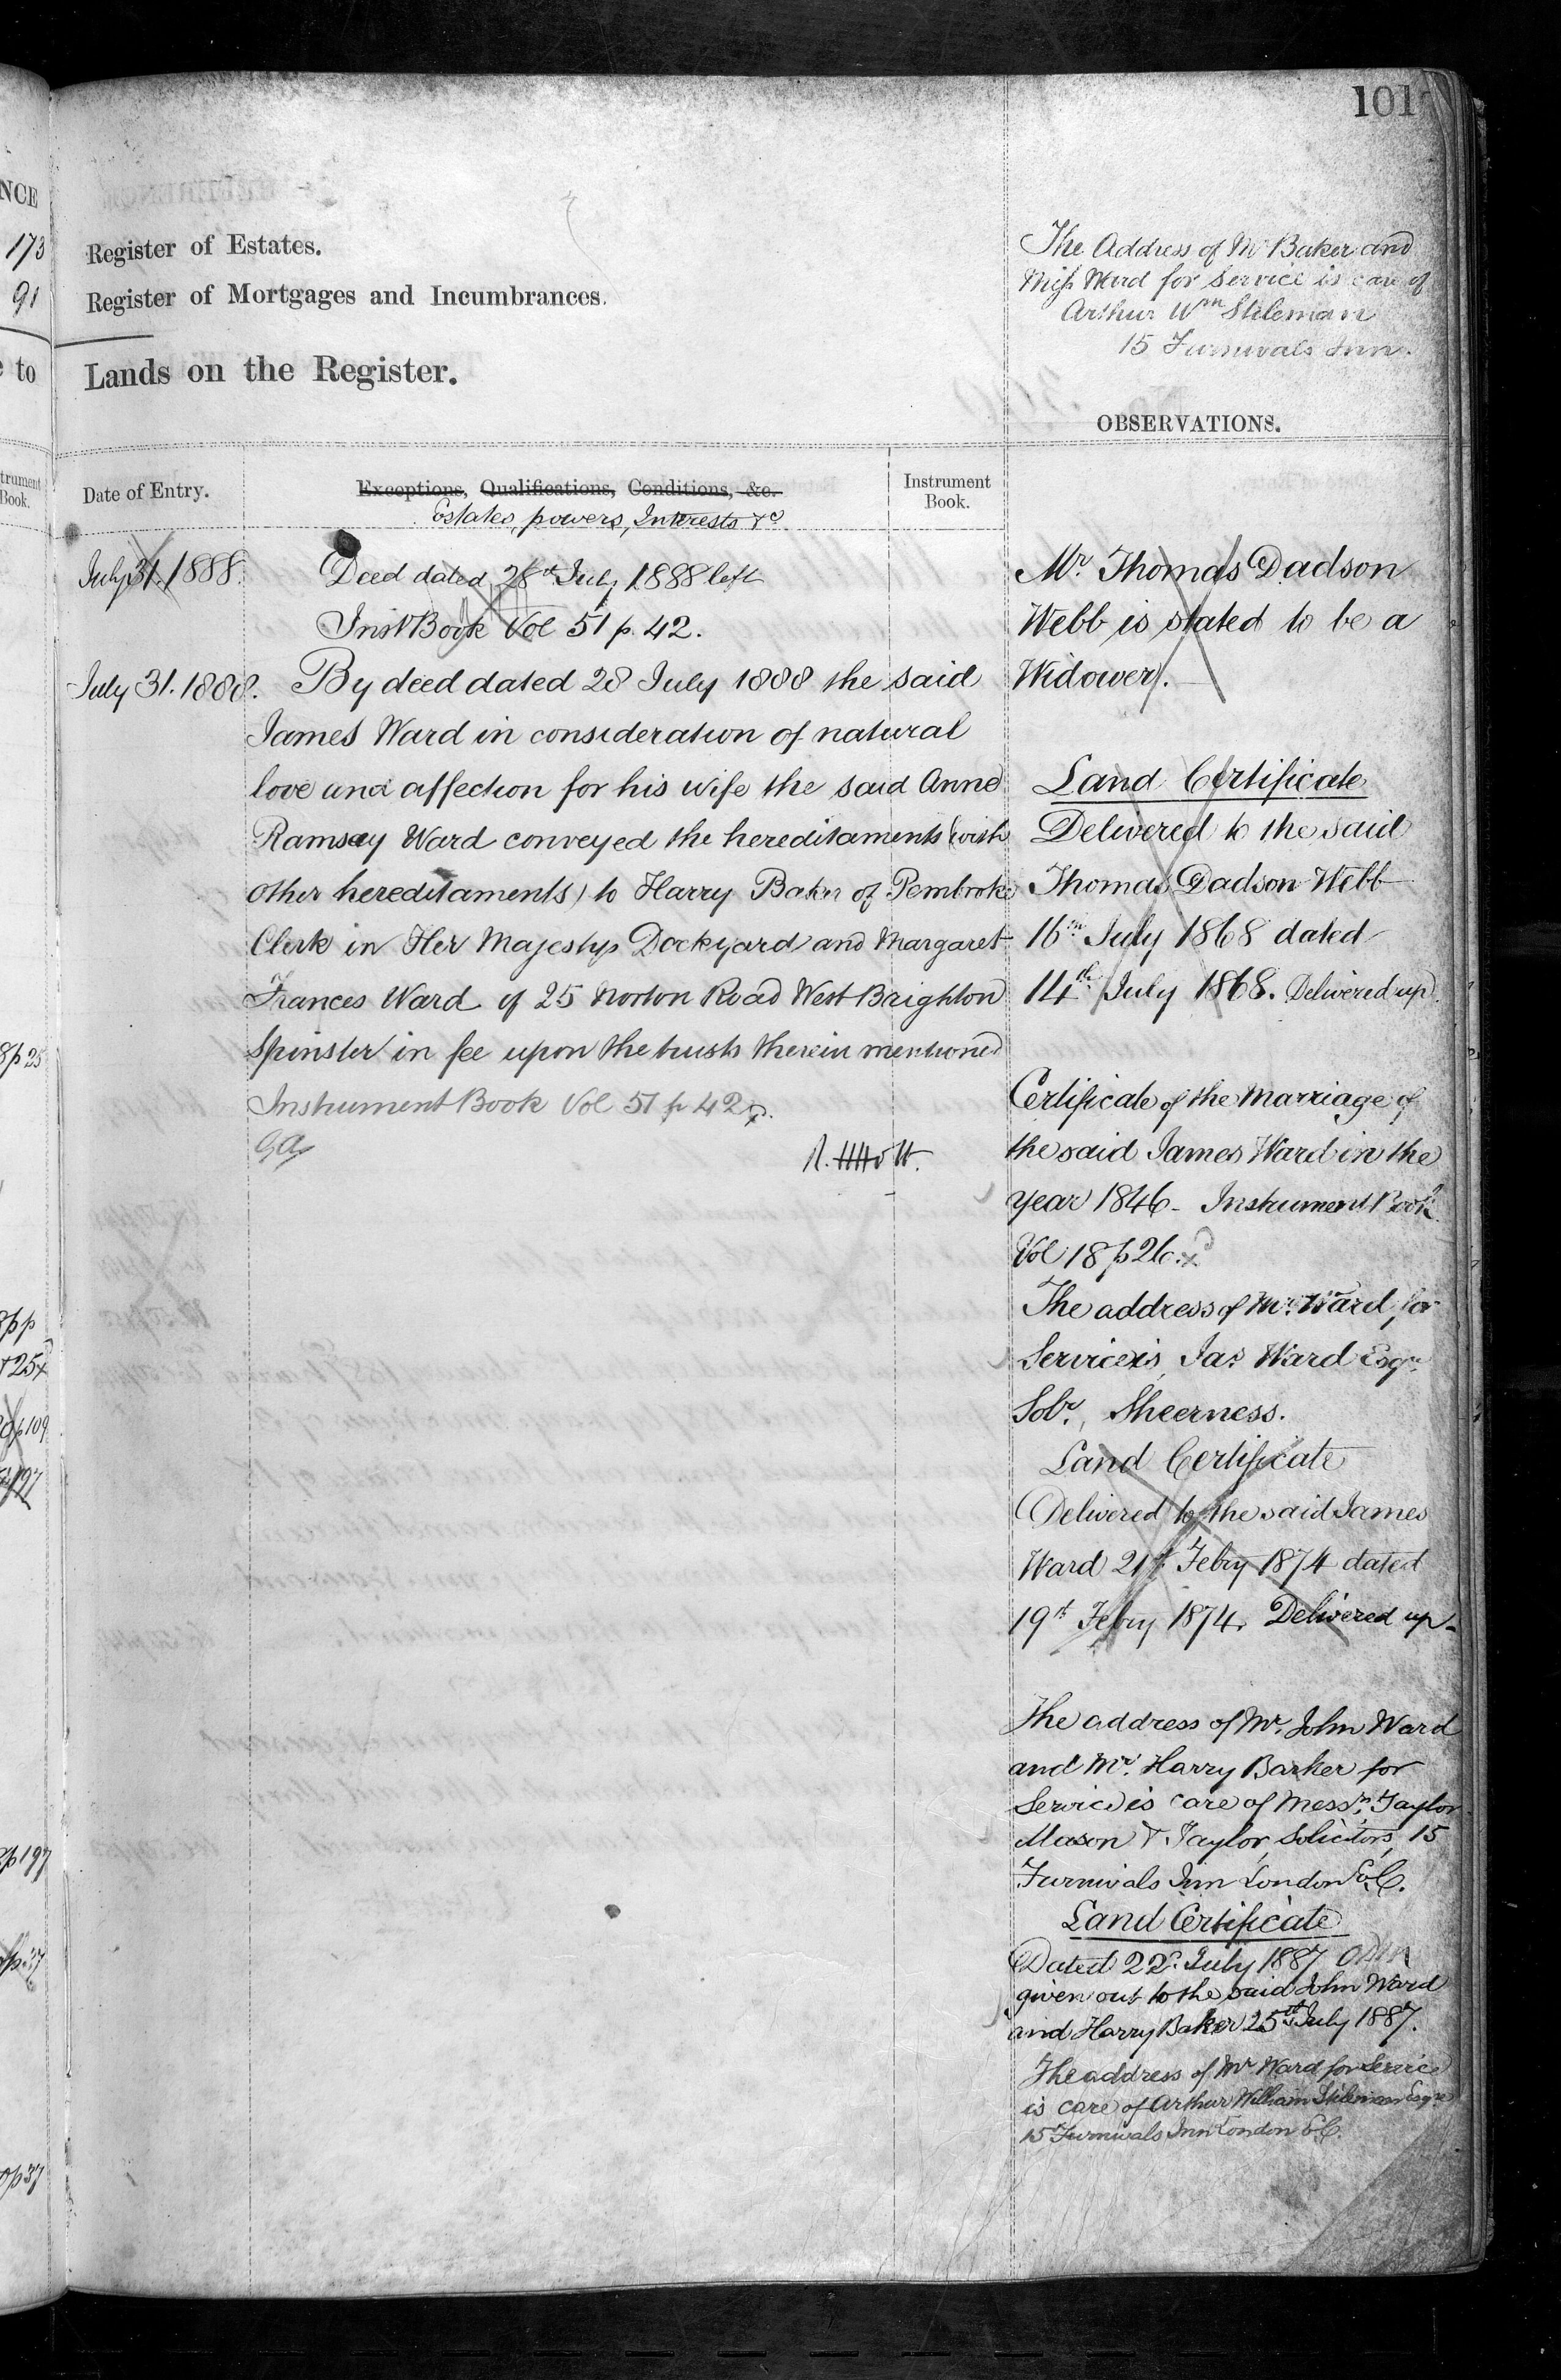 101
NCE
173
91
to
trument
Book.
8p25
8pp
+25x
p109
197
2p197
p37
0p37
Register of Estates.
Register of Mortgages and Incumbrances.
Lands on the Register.
The Address of Mr Baker and
Miss Ward for Service is care of
Arthur Wm Stileman
15 Furnivals Inn.
OBSERVATIONS.
Date of Entry.
Exceptions, Qualifications, Conditions, &c.
Estates, powers, Interests &c
Instrument
Book.
July 31. 1888.
Deed dated 28th July 1888 left
Inst Book Vol 51 p. 42.
July 31. 1888. By deed dated 28 July 1888 the said
James Ward in consideration of natural
love and affection for his wife the said Anne
Ramsay Ward conveyed the hereditaments (with
other hereditaments) to Harry Baker of Pembroke
Clerk in Her Majestys Dockyard and Margaret
Frances Ward of 25 Norton Road West Brighton
Spinster in fee upon the trusts therein mentioned
Instrument Book Vol 51 p 42
Mr. Thomas Dadson
Webb is stated to be a
Widower.
Land Certificate
Delivered to the said
Thomas Dadson Webb
16th July 1868 dated
14th July 1868. Delivered up.
Certificate of the Marriage of
the said James Ward in the
year 1846 - Instrument Book
Vol 18 p 26.x
The address of Mr. Ward for
Service is, Jas. Ward Esqr.
Solr., Sheerness.
Land Certificate
Delivered to the said James
Ward 21st Febry 1874 dated
19th Febry 1874. Delivered up -
The address of Mr. John Ward
and Mr. Harry Barker for
Service is care of Messrs. Taylor
Mason & Taylor, Solicitors, 15
Furnivals Inn London E.C.
Land Certificate
Dated 22d. July 1887
given out to the said John Ward
and Harry Baker 25th July 1887.
The address of Mr Ward for Service
is care of Arthur William Stileman Esqre
15 Furnivals Inn London E.C.